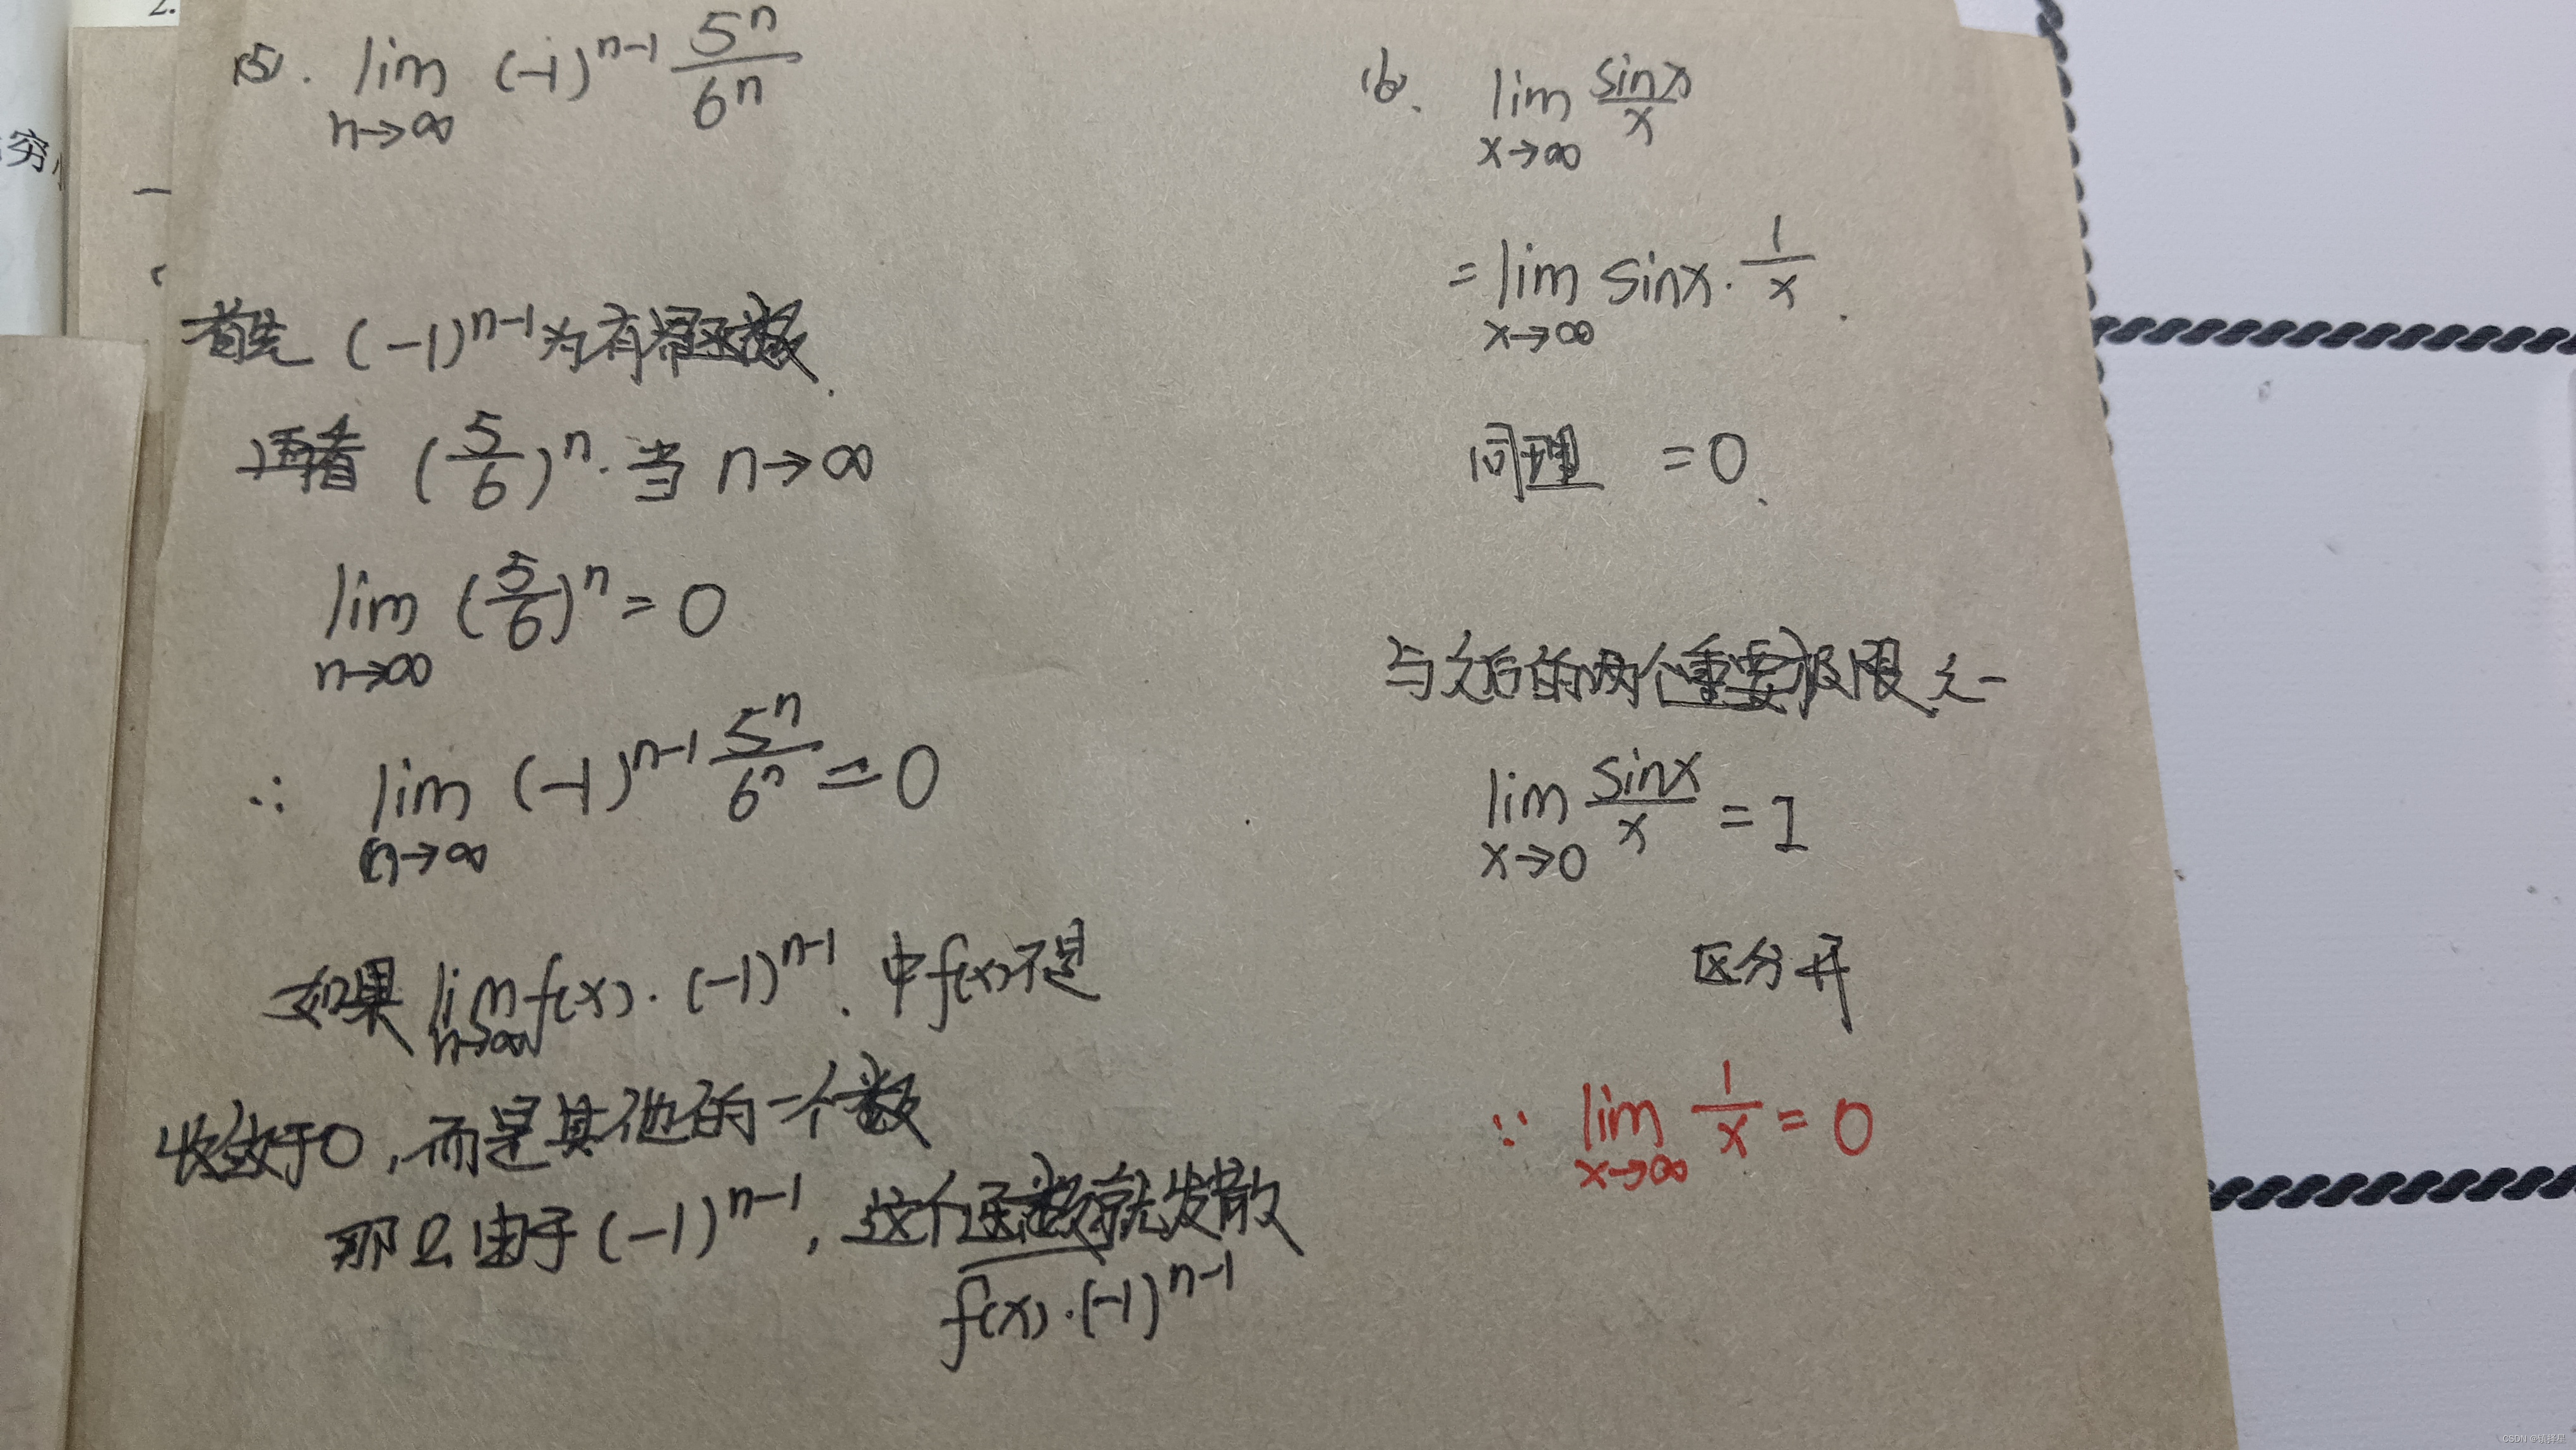 2.
穷
(5). lim (-1)^{n-1} 5^n/6^n
n→∞
首先 (-1)^{n-1} 为有界函数.
再看 (5/6)^n. 当 n→∞
lim (5/6)^n = 0
n→∞
∴ lim (-1)^{n-1} 5^n/6^n = 0
n→∞
如果 lim f(x)·(-1)^{n-1}. 中f(x)不是
n→∞
收敛于0,而是其他的一个数
那么由于(-1)^{n-1},这个函数就发散
f(x)·(-1)^{n-1}
(6). lim sinx/x
x→∞
= lim sinx·1/x.
x→∞
同理 =0.
与之后的两个重要极限之一
lim sinx/x = 1
x→0
区分开
∵ lim 1/x = 0
x→∞